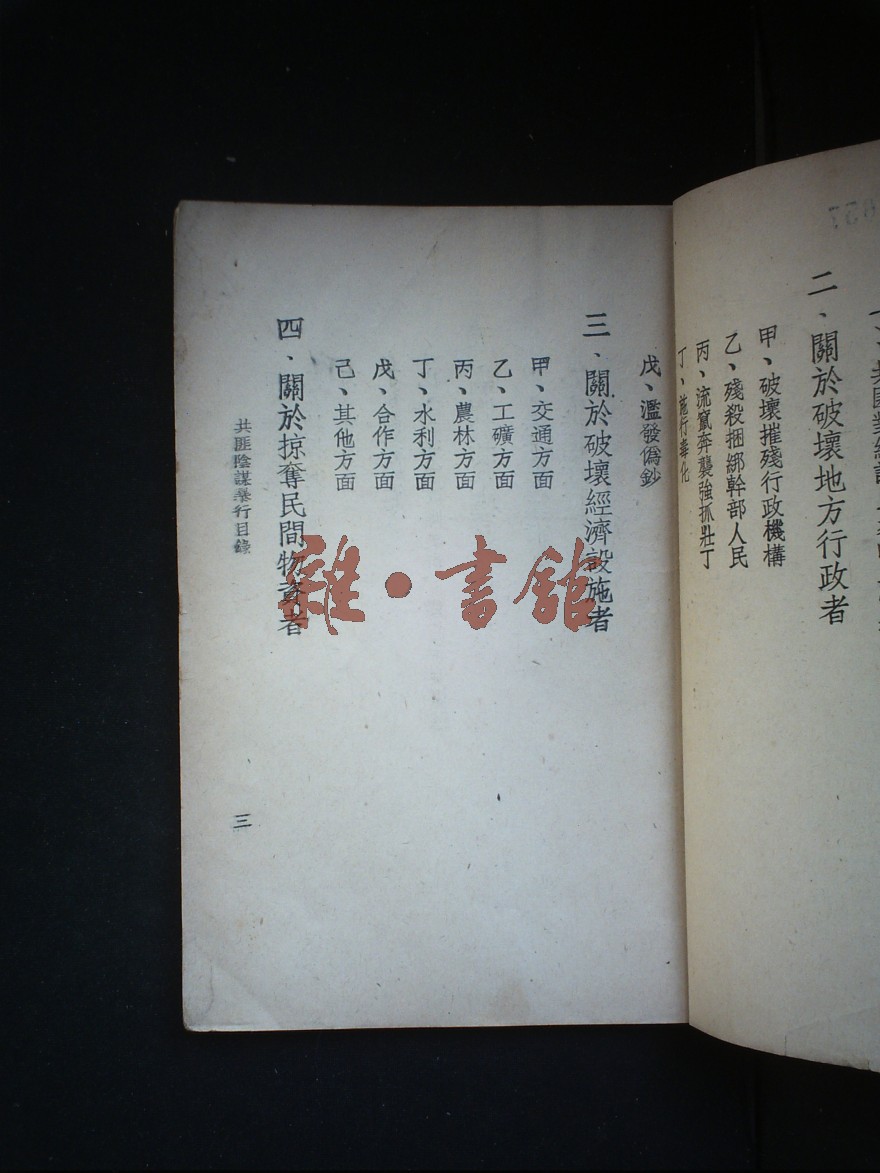 二、關於破壞地方行政者
甲、破壞摧殘行政機構
乙、殘殺捆綁幹部人民
丙、流竄奔襲強抓壯丁
丁、施行毒化
戊、濫發偽鈔
三、關於破壞經濟設施者
甲、交通方面
乙、工礦方面
丙、農林方面
丁、水利方面
戊、合作方面
己、其他方面
四、關於掠奪民間物資者
共匪陰謀暴行目錄
三
雜·書館